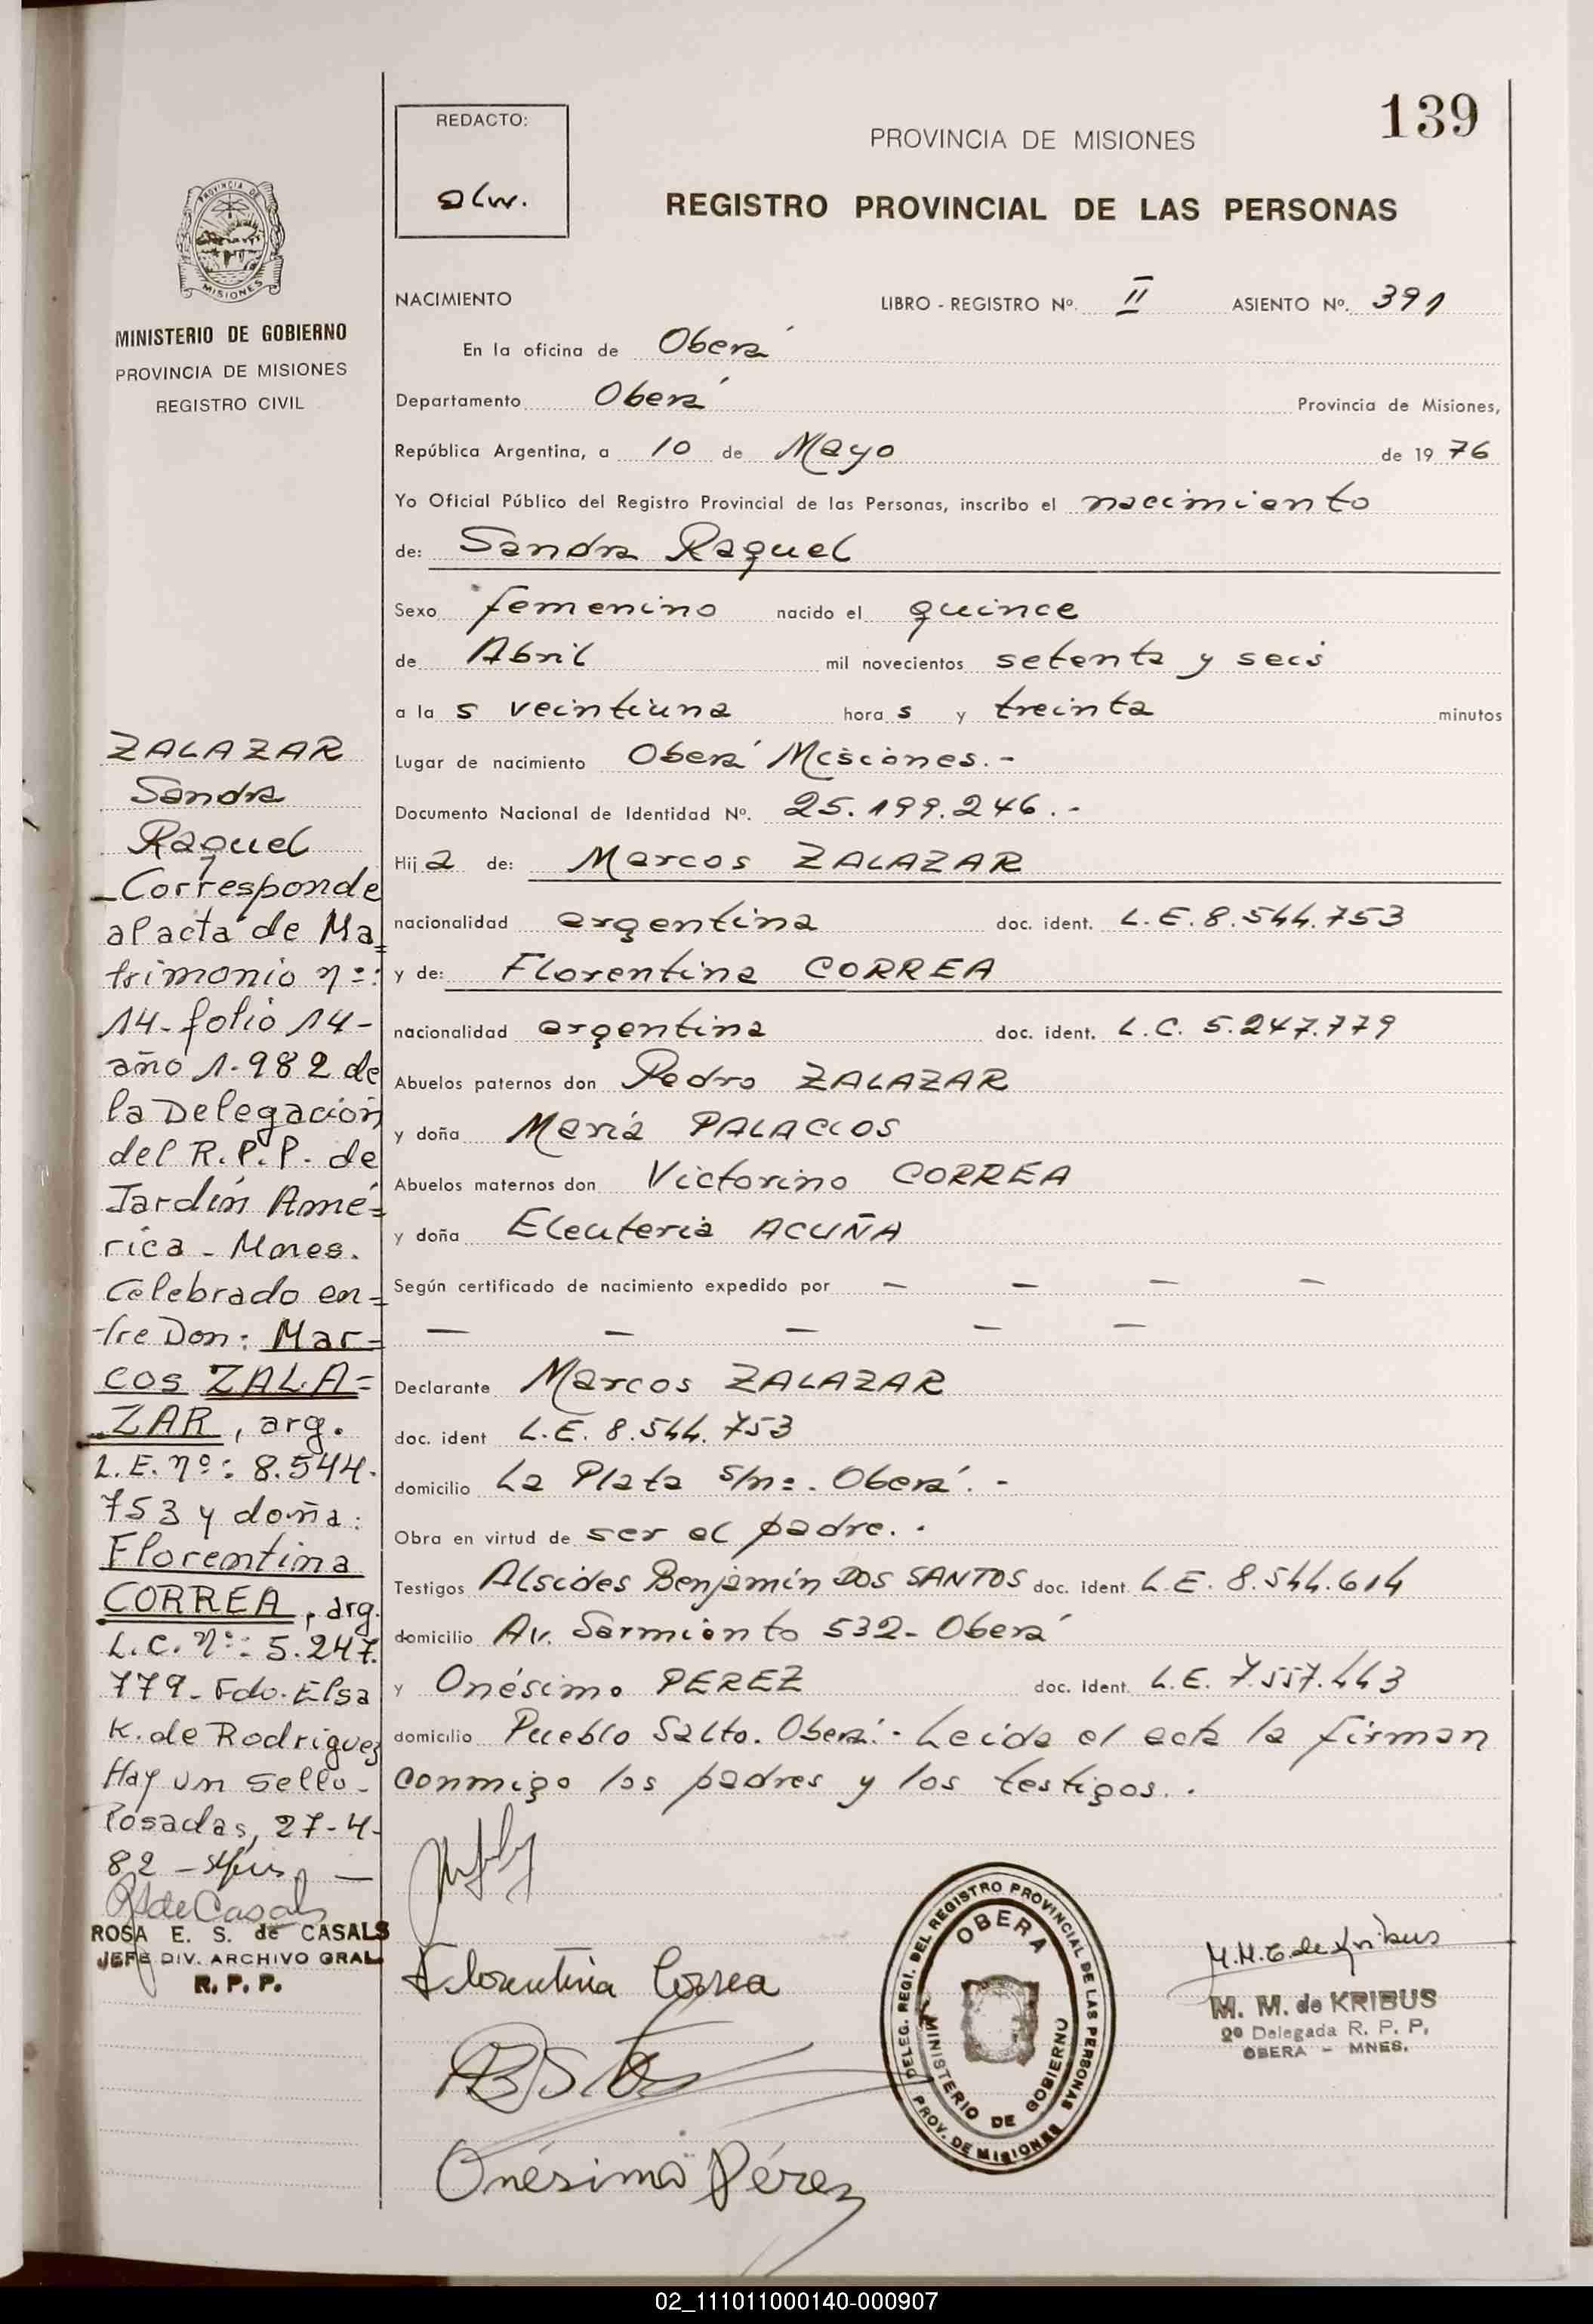 139
REDACTO:
PROVINCIA DE MISIONES
REGISTRO PROVINCIAL DE LAS PERSONAS
PROVINCIA DE
MISIONES
MINISTERIO DE GOBIERNO
PROVINCIA DE MISIONES
REGISTRO CIVIL
NACIMIENTO LIBRO - REGISTRO Nº. II ASIENTO Nº. 391
En la oficina de Oberá
Departamento Oberá Provincia de Misiones,
República Argentina, a 10 de Mayo de 19 76
Yo Oficial Público del Registro Provincial de las Personas, inscribo el nacimiento
de: Sandra Raquel
Sexo femenino nacido el quince
de Abril mil novecientos setenta y seis
a la s veintiuna hora s y treinta minutos
Lugar de nacimiento Oberá Misiones.-
Documento Nacional de Identidad Nº. 25.199.246.-
Hij a de: Marcos ZALAZAR
nacionalidad argentina doc. ident. L.E. 8.544.753
y de: Florentina CORREA
nacionalidad argentina doc. ident. L.C. 5.247.779
Abuelos paternos don Pedro ZALAZAR
y doña María PALACIOS
Abuelos maternos don Victorino CORREA
y doña Eleuteria ACUÑA
Según certificado de nacimiento expedido por — — — —
— — — — —
Declarante Marcos ZALAZAR
doc. ident L.E. 8.544.753
domicilio La Plata s/nº. Oberá.-
Obra en virtud de ser el padre..
Testigos Alsides Benjamín DOS SANTOS doc. ident. L.E. 8.544.614
domicilio Av. Sarmiento 532- Oberá
y Onésimo PEREZ doc. ident. L.E. 7.557.443
domicilio Pueblo Salto. Oberá.- Leída el acta la firman
conmigo los padres y los testigos..
ZALAZAR
Sandra
Raquel
-Corresponde
al acta de Ma=
trimonio nº:
14-folio 14-
año 1.982 de
la Delegación
del R.P.P. de
Jardín Amé=
rica - Mnes.
Celebrado en=
tre Don: Mar=
cos ZALA=
ZAR, arg.
L.E. nº: 8.544.
753 y doña:
Florentina
CORREA, arg.
L.C. nº: 5.247.
779- Fdo. Elsa
K. de Rodriguez
Hay un sello-
Posadas, 27-4-
82 -
RSdeCasals
ROSA E. S. de CASALS
JEFE DIV. ARCHIVO GRAL
R. P. P.
Florentina Correa
Onésimo Pérez
DELEG. REGI. DEL REGISTRO PROVINCIAL DE LAS PERSONAS
PROV. DE MISIONES
OBERA
MINISTERIO DE GOBIERNO
M.M.G de Kribus
M. M. de KRIBUS
2º Delegada R. P. P.
OBERA - MNES.
02_111011000140-000907